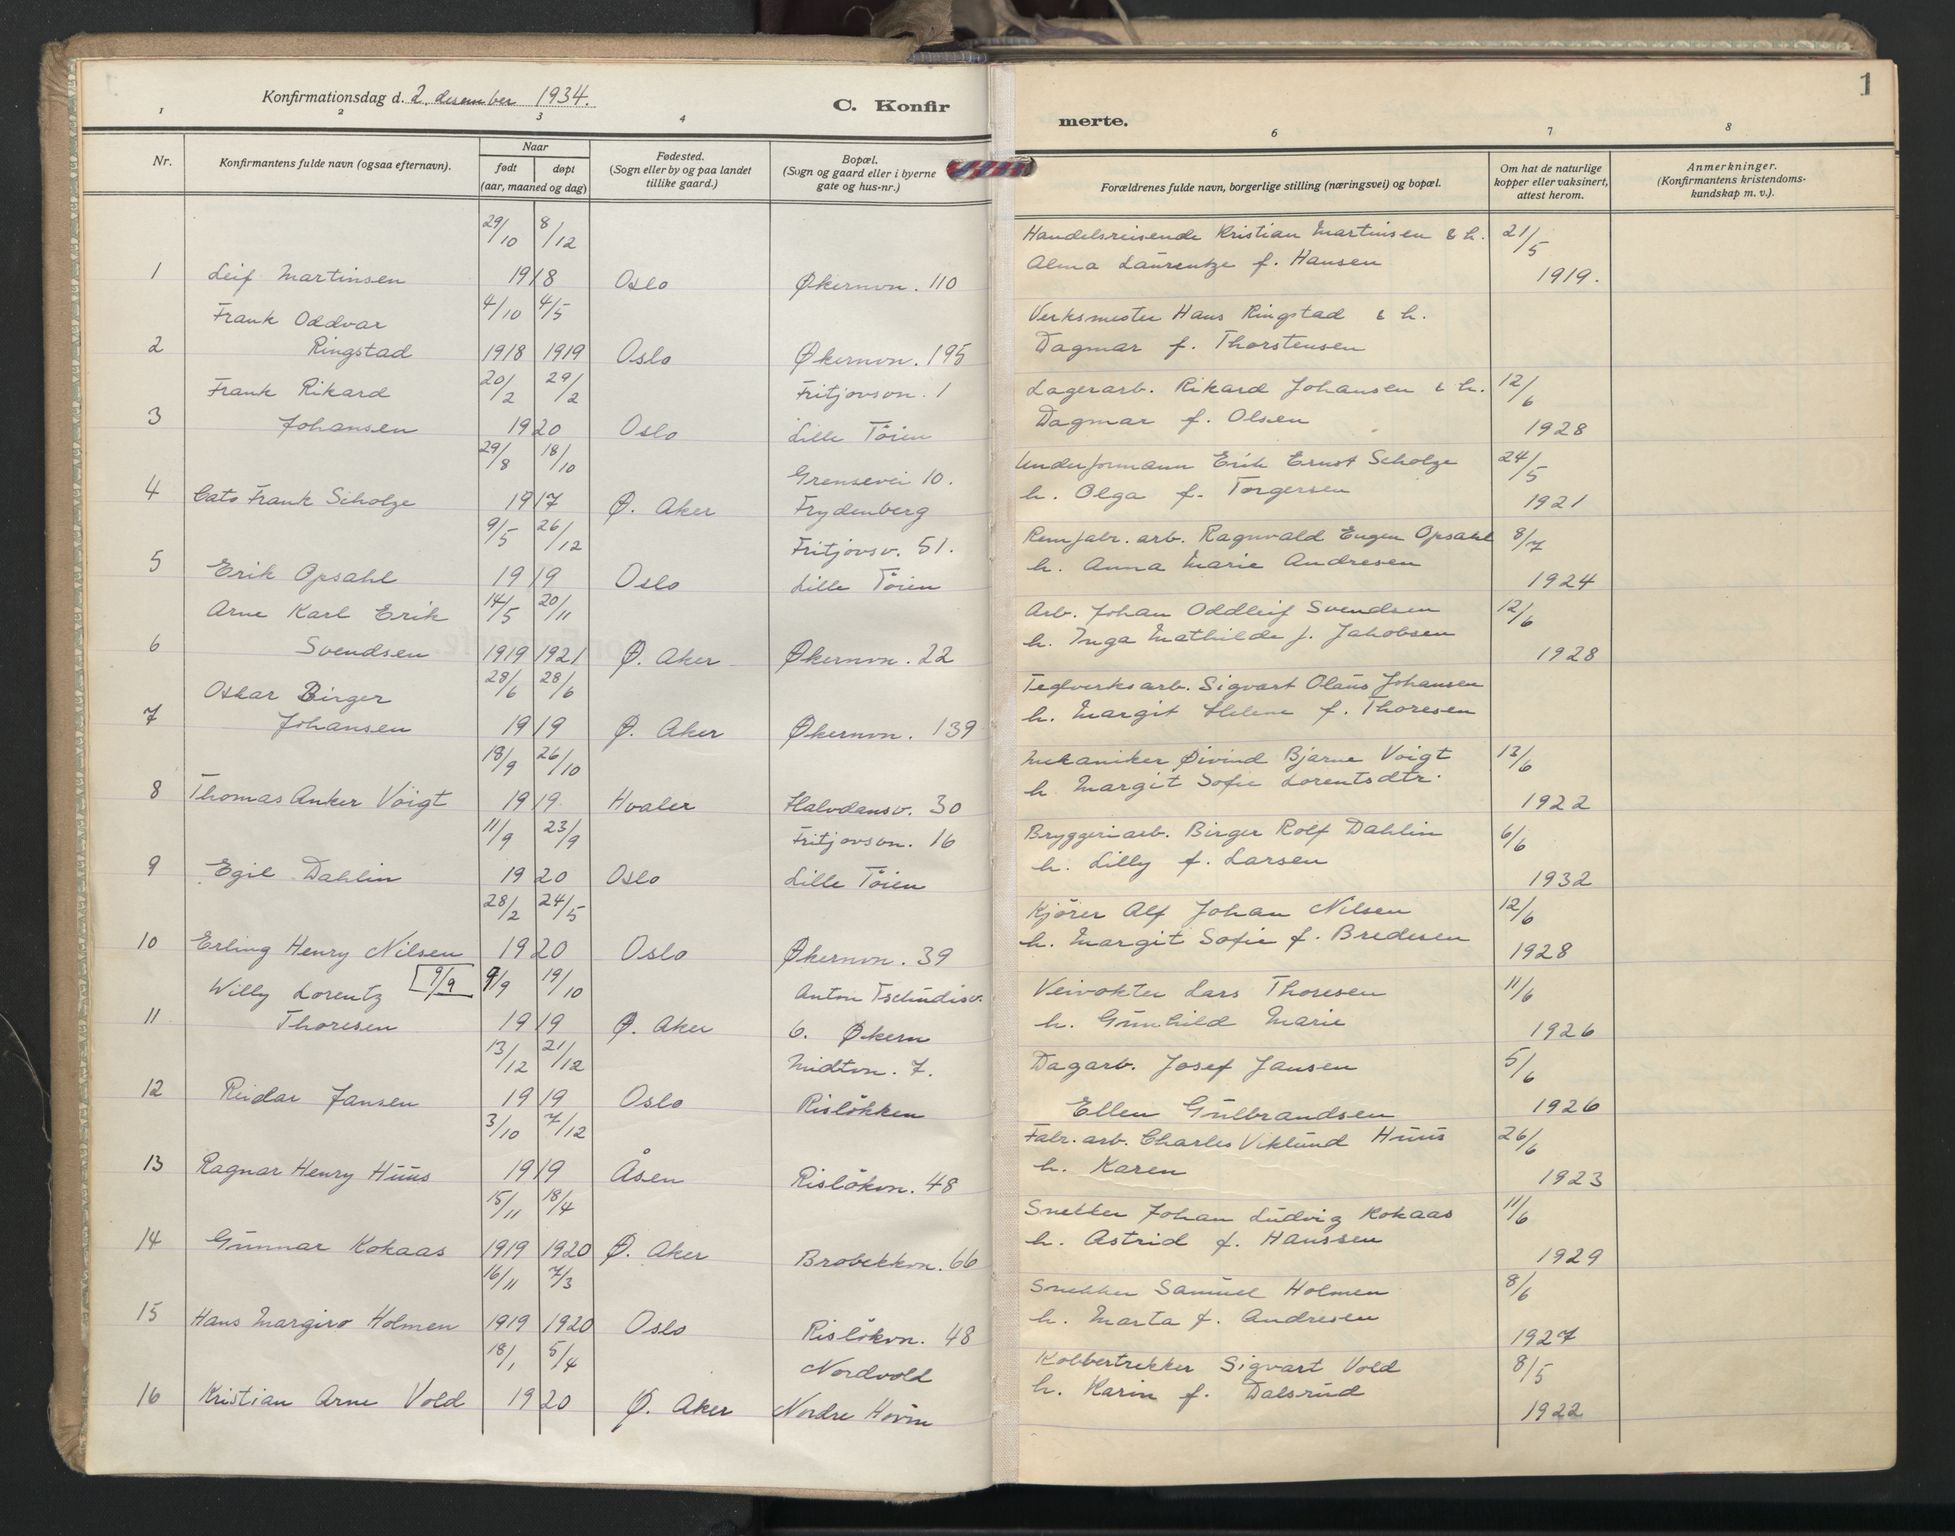 Konfirmationsdag d. 2. desember 1934.
C. Konfir
merte.
1
1 2 3 4 6 7 8
Nr.
Konfirmantens fulde navn (ogsaa efternavn).
Naar
født
døpt
(aar, maaned og dag)
Fødested.
(Sogn eller by og paa landet
tillike gaard.)
Bopæl.
(Sogn og gaard eller i byerne
gate og hus-nr.)
Forældrenes fulde navn, borgerlige stilling (næringsvei) og bopæl.
Om hat de naturlige
kopper eller vaksinert,
attest herom.
Anmerkninger.
(Konfirmantens kristendoms-
kundskap m. v.).
29/10 8/12
1 Leif Martinsen 1918 Oslo Økernvn. 110
Handelsreisende Kristian Martinsen & h. 21/5
Alma Laurentze f. Hansen 1919.
Frank Oddvar 4/10 4/5
2 Ringstad 1918 1919 Oslo Økernvn. 195
Verksmester Hans Ringstad & h.
Dagmar f. Thorstensen
Frank Rikard 20/2 29/2 Fritjovsvn. 1
3 Johansen 1920 Oslo Lille Töien
Lagerarb. Rikard Johansen & h. 12/6
Dagmar f. Olsen 1928
29/8 18/10 Grensevei 10.
4 Cato Frank Scholze 1917 Ø. Aker Frydenberg
Underformann Erik Ernst Scholze 24/5
h. Olga f. Torgersen 1921
9/5 26/12 Fritjovsv. 51.
5 Erik Opsahl 1919 Oslo Lille Töien
Remfabr. arb. Ragnvald Eugen Opsahl 8/7
h. Anna Marie Andresen 1924
Arne Karl Erik 14/5 20/11
6 Svendsen 1919 1921 Ø. Aker Økernvn. 22
Arb. Johan Oddleif Svendsen 12/6
h. Inga Mathilde f. Jakobsen 1928
Oskar Birger 28/6 28/6
7 Johansen 1919 Ø. Aker Økernvn. 139
Teglverksarb. Sigvart Olaus Johansen
h. Margit Helene f. Thoresen
18/9 26/10
8 Thomas Anker Voigt 1919. Hvaler Halvdansv. 30
Mekaniker Øivind Bjarne Voigt 13/6
h. Margit Sofie Lorentsdtr. 1922
11/9 23/9 Fritjovsvn. 16
9 Egil Dahlin 1920 Oslo Lille Töien
Bryggeriarb. Birger Rolf Dahlin 6/6
h. Lilly f. Larsen 1932
28/2 24/5
10 Erling Henry Nilsen 1920 Oslo Økernvn. 39
Kjörer Alf Johan Nilsen 12/6
h. Margit Sofie f. Bredesen 1928
Willy Lorentz 9/9 9/9 19/10 Anton Tschudisv.
11 Thoresen 1919 Ø. Aker 6. Økern
Veivokter Lars Thoresen 11/6
h. Gunhild Marie 1926
13/12 21/12 Midtvn. 7.
12 Reidar Jansen 1919 Oslo Risløkken
Dagarb. Josef Jansen 5/6
Ellen Gulbrandsen 1926
3/10 7/12
13 Ragnar Henry Huus 1919 Åsen Risløkvn. 48
Fabr. arb. Charles Viklund Huus 26/6
h. Karen 1923
15/11 18/4
14 Gunnar Kokaas 1919 1920 Ø. Aker Brobekkvn. 66
Snekker Johan Ludvig Kokaas 11/6
h. Astrid f. Hanssen 1929
16/11 7/3
15 Hans Margiro Holmen 1919 1920 Oslo Risløkvn. 48
Snekker Samuel Holmen 8/6
h. Marta f. Andresen 1927
18/1 5/4 Nordvold
16 Kristian Arne Vold 1920 Ø. Aker Nordre Hovin
Kobbertrekker Sigvart Vold 8/5
h. Karin f. Dalsrud 1922